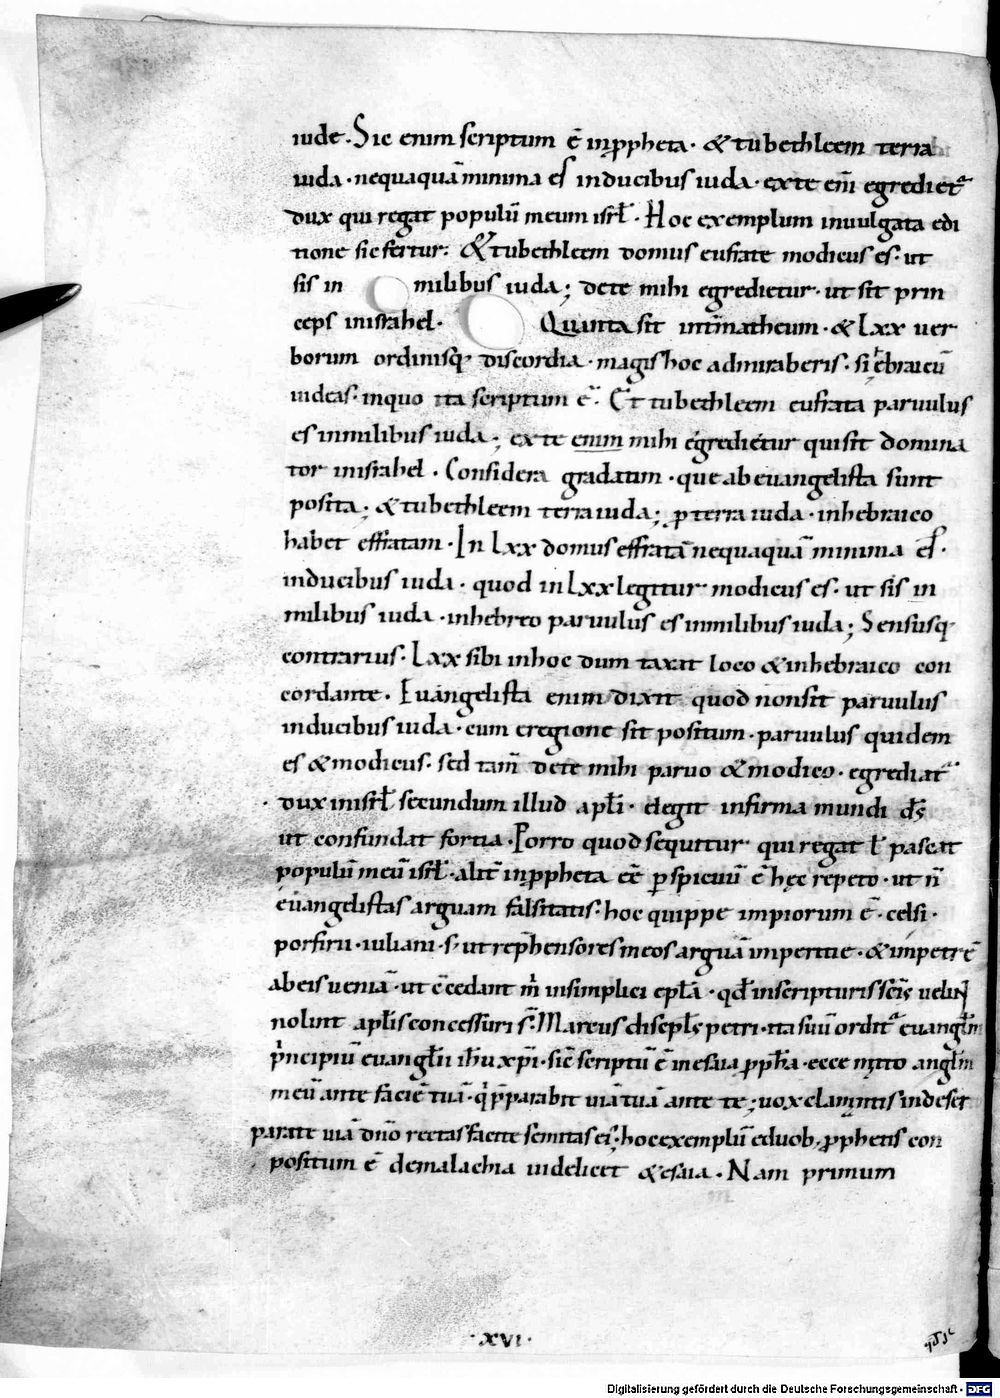 iude. Sic enim scriptum ē in ꝓpheta. & tu bethleem terra
iuda. nequaquā minima es in ducibus iuda. ex te eni̅ egredietᷣ
dux qui regat populū meum isrł. Hoc exemplum inuulgata edi
tione sic fertur. & tu bethleem domus eufrate modicus es. ut
sis in milibus iuda; de te mihi egredietur. ut sit prin
ceps in israhel. Quinta sit int̄ matheum. & Lxx uer
borum ordinisq; discordia. magis hoc admiraberis. si ebraicū
uideas. in quo ita scriptum ē. Et tu bethleem eufrata paruulus
es in milibus iuda; ex te enim mihi egredietur qui sit domina
tor in israhel. Considera gradatim. que ab euangelista sunt
posita; & tu bethleem terra iuda; ꝓ terra iuda. in hebraico
habet effratam. In Lxx domus effratā nequaquā minima es.
in ducibus iuda. quod in Lxx legitur modicus es. ut sis in
milibus iuda. in hebreo paruulus es in milibus iuda; Sensusq;
contrarius. Lxx sibi in hoc dum taxat loco & in hebraico con
cordante. Euangelista enim dixit quod non sit paruulus
in ducibus iuda. cum e regione sit positum. paruulus quidem
es & modicus. sed tam̄ de te mihi paruo & modico. egrediatᷣ
dux in isrł secundum illud apłi. elegit infirma mundi ds̄
ut confundat fortia. Porro quod sequitur qui regat ł pascat
populū meū isrł. alit̄ in ꝓpheta eē ꝑspicuū ē hęc repeto. ut n̄
euangelistas arguam falsitatis. hoc quippe impiorum ē. celsi.
porfirii. iuliani. s; ut rep̄hensores meos arguā imperitie. & impetrē
ab eis ueniā. ut c̄cedant m̄ in simplici epła. qd̄ in scripturis sc̄is uelint
nolint apłis concessuri s̄. Marcus discipłs petri. ita suū orditᷣ euangłm
principiū euangłii ih̄u xp̄i. sic scriptū ē in esaia ꝓph̄a. ecce mitto angłm
meū ante faciē tuā. q p̄parabit uiā tuā ante te; uox clamantis in deser
parate uiā dn̄o rectas facite semitas ei'. hoc exemplū e duob; ꝓphetis con
positum ē de malachia uidelicet & esaia. Nam primum
.XVI.
Digitalisierung gefördert durch die Deutsche Forschungsgemeinschaft - DFG